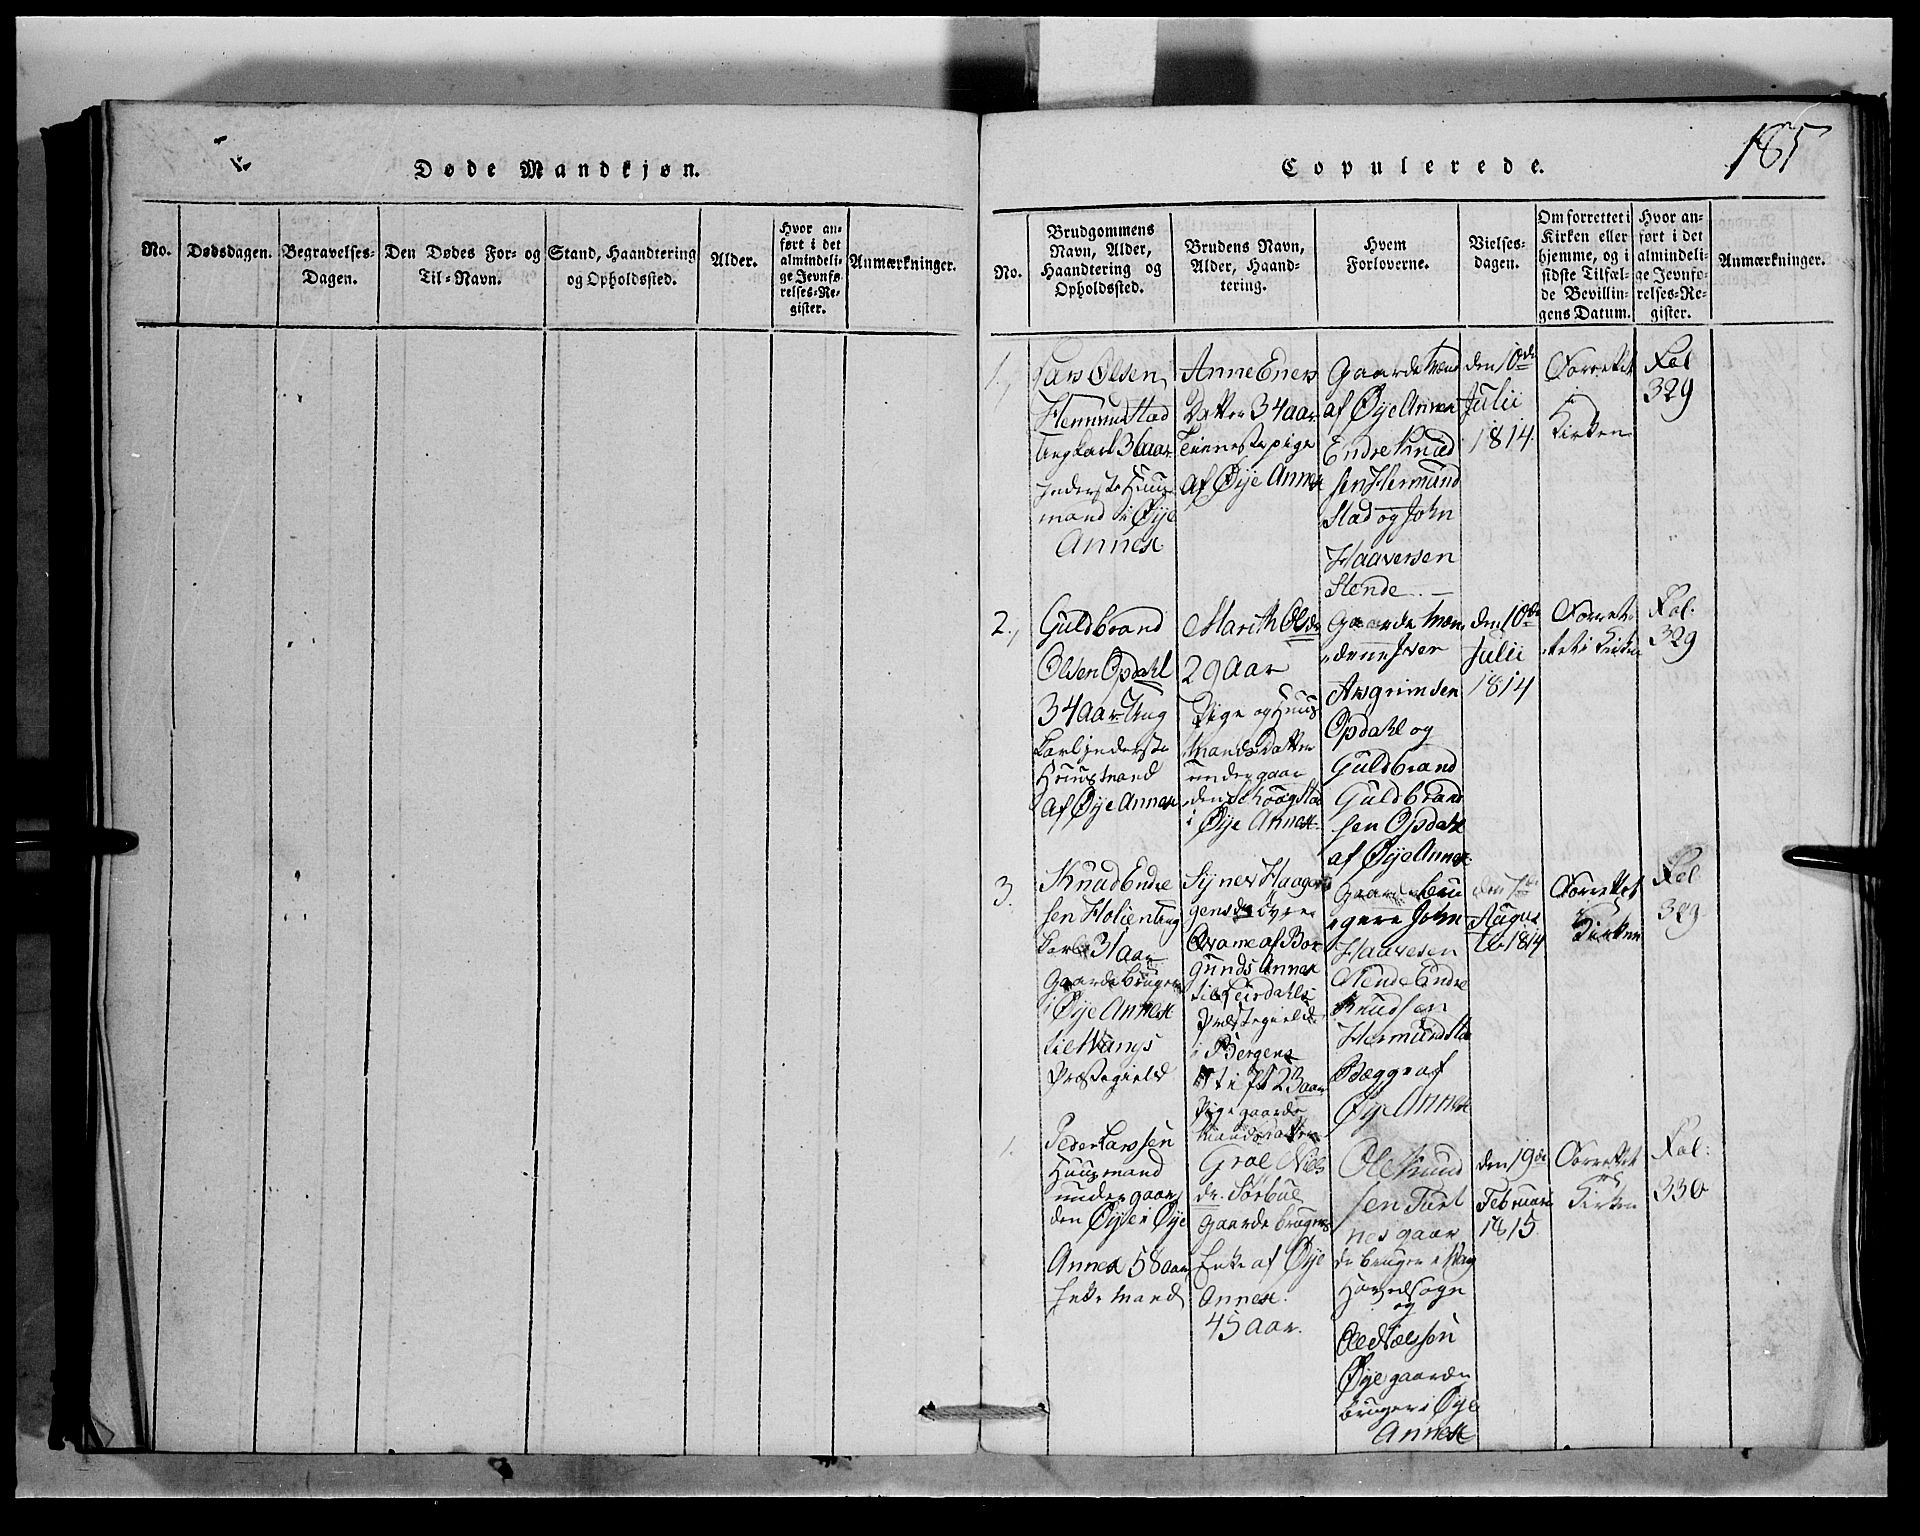 Døde Mandkjøn.
No.
Dødsdagen.
Begravelses-
Dagen.
Den Dødes For- og
Til-Navn.
Stand, Haandtering
og Opholdssted.
Alder.
Hvor an-
ført i det
almindeli-
ge Jevnfø-
relses-Re-
gister.
Anmærkninger.
185
Copulerede.
No.
Brudgommens
Navn, Alder,
Haandtering og
Opholdssted.
Brudens Navn,
Alder, Haand-
tering.
Hvem
Forloverne.
Vielses-
dagen.
Om forrettet i
Kirken eller
hjemme, og i
sidste Tilfæl-
de Bevillin-
gens Datum.
Hvor an-
ført i det
almindeli-
ge Jevnfø-
relses-Re-
gister.
Anmærkninger.
1.,
Lars Olsen
Hermunstad
Ungkarl 36 aar
Inderste Huus-
mand i Øye
Annex
Anne Eners
Datter 34 aar
Tienestepige
af Øye Annex
Gaardemænd
af Øye Annex
Endre Knud
sen Hermund
Stad og John
Haaversen
Stende
den 10de
Julii
1814.
Forrettet
i
Kirken
Fol
329
2.,
Guldbrand
Olsen Opdahl
34 aar Ung
karl inderste
Huusmand
af Øye Annex
Marith Olsdr
29 aar
Pige og Huus
mands Datter
under gaar
den
i Øye Annex
Gaardemæn
dene Iver
Asgrimsen
Opdahl og
Guldbrand
Guldbrand
sen Opdahl
af Øye Annex
den 10de
Julii
1814
Forret-
tet i Kirken
Fol.
329
3.
Knud Endre
sen Holien Ung
karl 31 aar
Gaardebruger
i Øye Annex
til Wangs
Præstegield
Synev Haagen
gensdr
af Bor
gunds Annex
til Leirdahls
Præstegield
i Bergens
Stift 23 aar
Pige gaarde
mands datter
Gaardebru
gere John
Haavesen
Stende Endre
Knudsen
Hermundsta
Begge af
Øye Annex
den 7de
Augus
ti 1814
Forrettet
i
Kirken
Fol
329
1.
Peder Larssen
Huusmand
under gaar
den Øye i Øye
Annex 58 aar
Enkemand
Groe Niels
dr. Sørbøl
gaardebrugers
Enke af Øye
Annex
45 aar.
Ole Knud
sen
gaar
debruger i Wang
Hovedsogn
og
Ole Nielssen
Øye gaarde
bruger i Øye
Annex
den 19de
Februari
1815
Forrettet
i
Kirken
Fol:
330